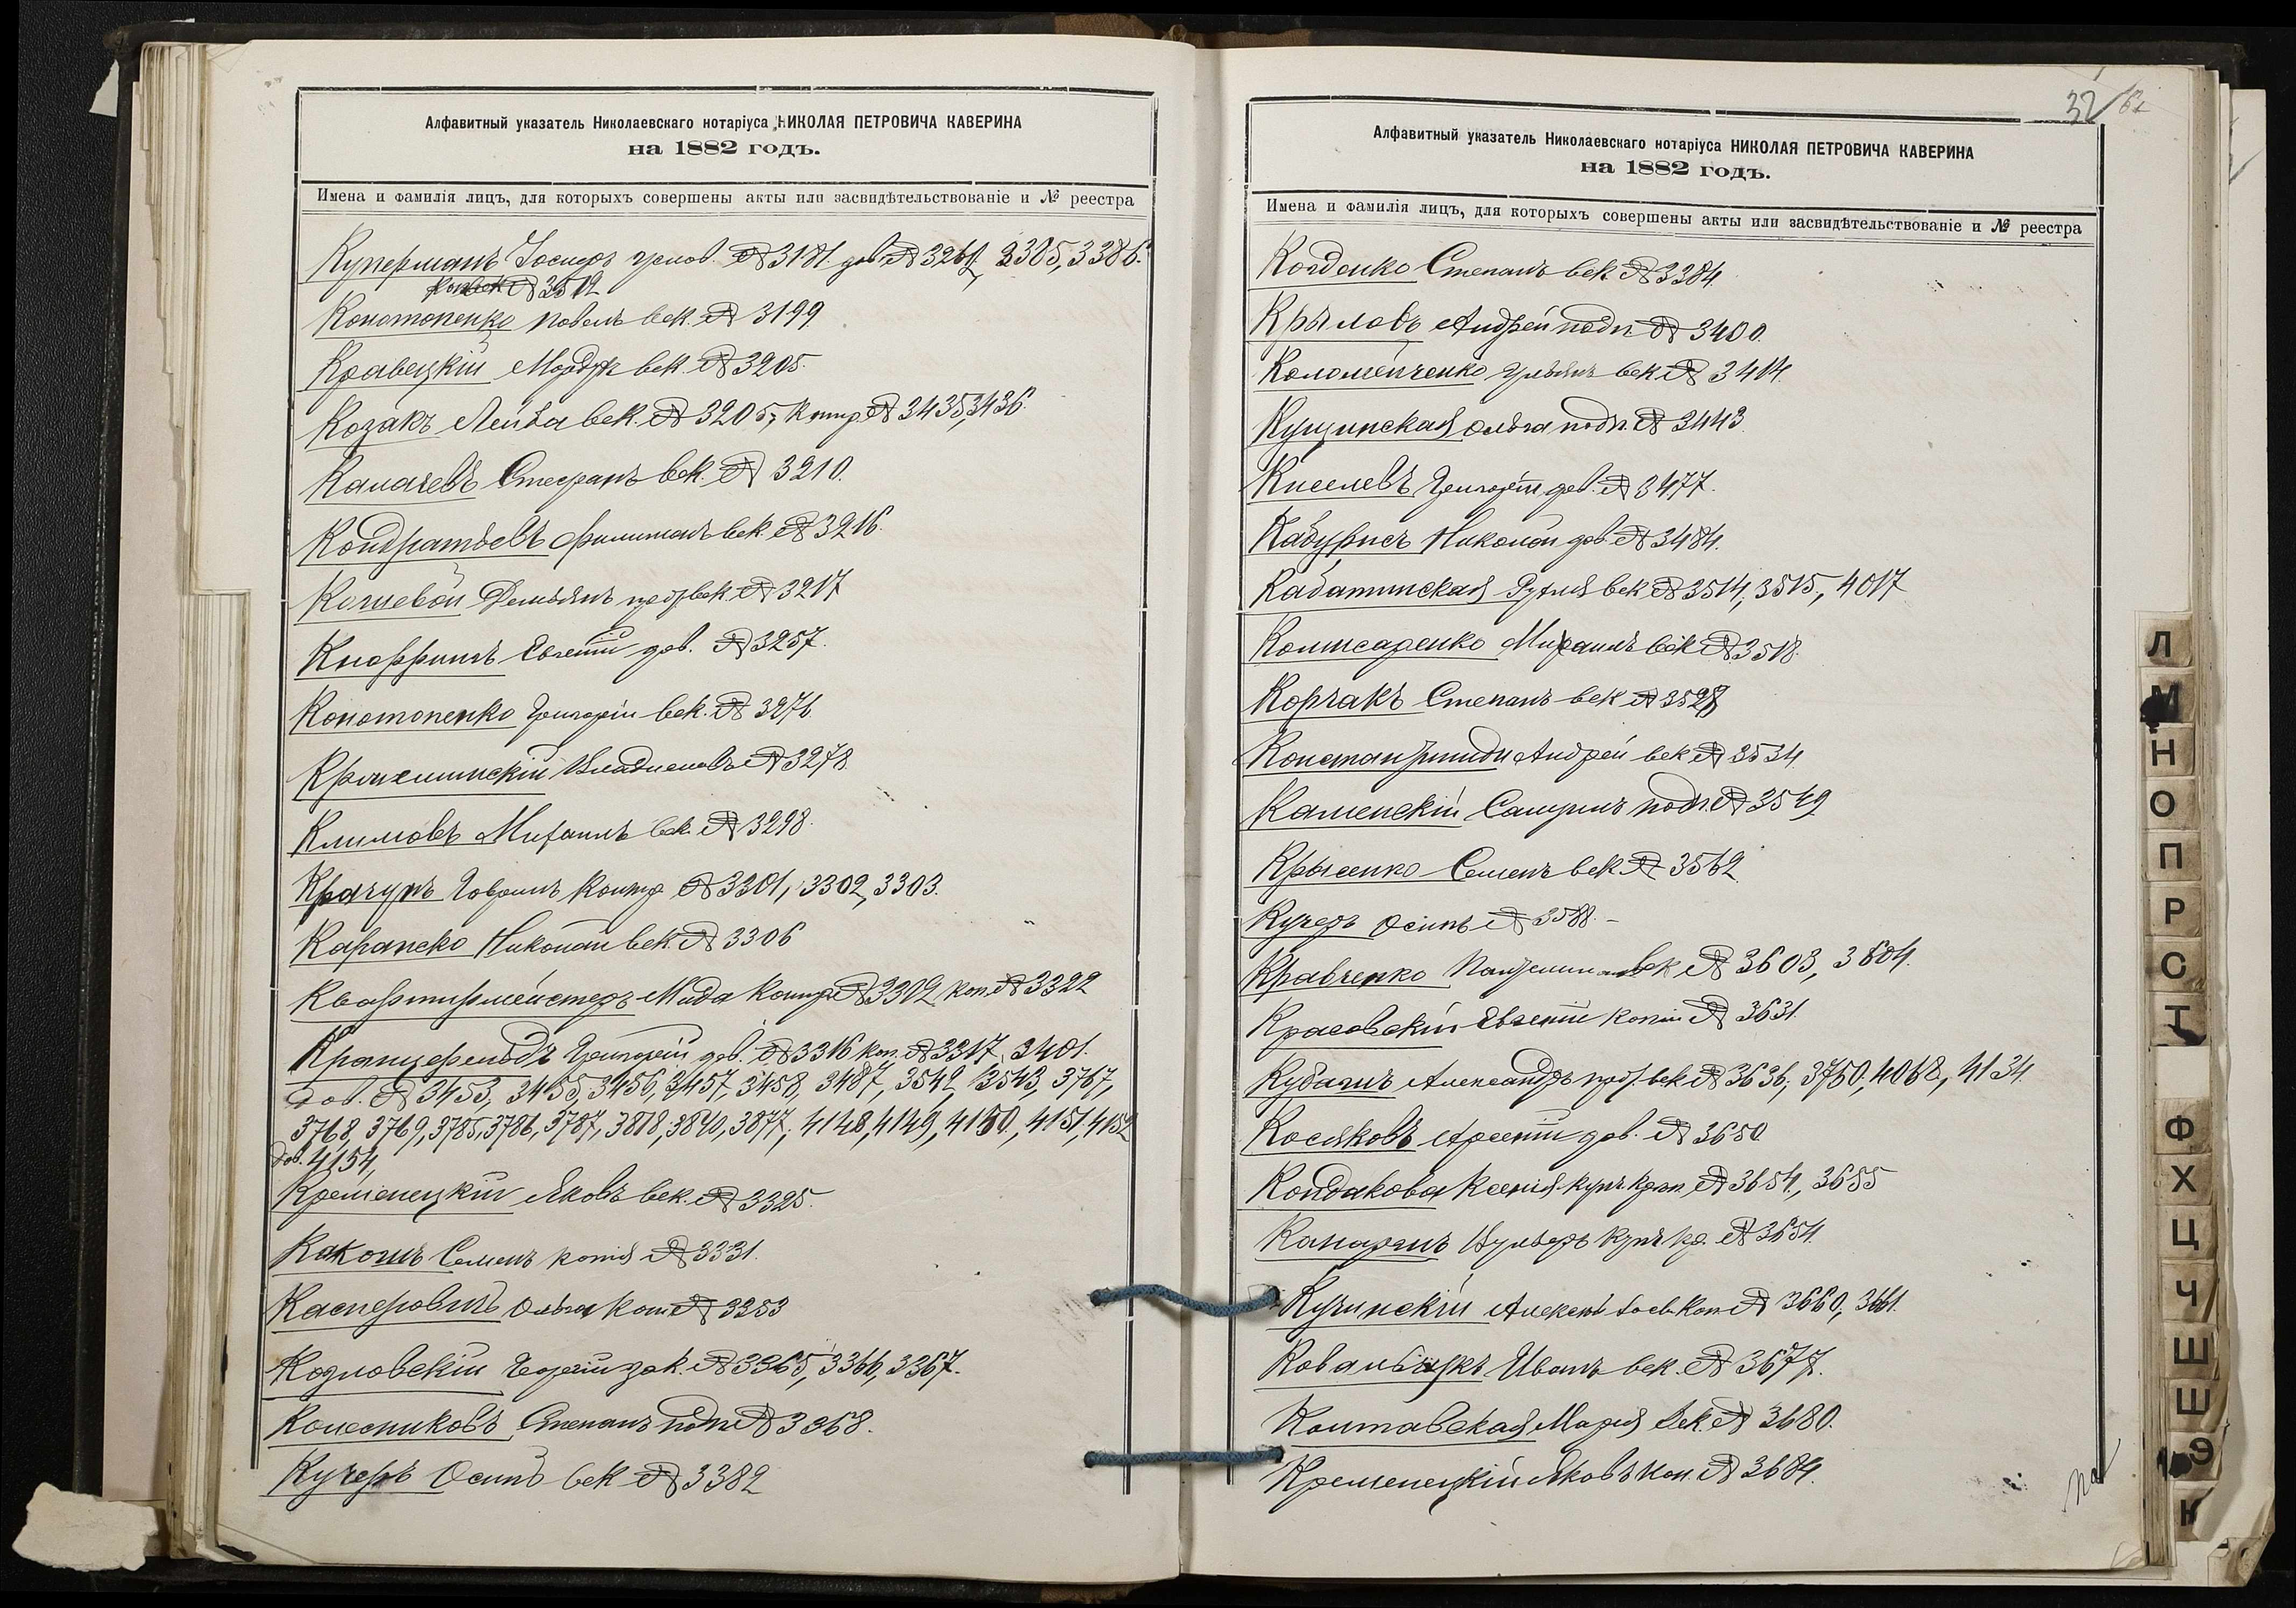 Алфавитный указатель Николаевскаго нотаріуса НИКОЛАЯ ПЕТРОВИЧА КАВЕРИНА
на 1882 годъ.
Имена и фамилія лицъ, для которыхъ совершены акты или засвидѣтельствованіе и № реестра
Куперманъ Іосифъ № 3181. дов. № 3261, 3385, 3386.
№ 3512
Конотопенко Павелъ век. № 3199
Кравецкій Мордко век. № 3205.
Козакъ Лейба век. № 3205, контр. № 3435, 3436.
Калачевъ Стефанъ век. № 3210.
Кондратьевъ Филимонъ век. № 3216.
Кошевой Демьянъ век. № 3217
Кноррингъ Евгеній дов. № 3257.
Конотопенко Григорій век. № 3276
Владиславъ № 3278
Климовъ Михаилъ век. № 3298.
Крачунъ Гавріилъ контр № 3301, 3302, 3303.
Николай век. № 3306
Квартирмейстеръ контр. № 3302 коп. № 3322
Кранцфельдъ Григорій дов. № 3316 коп. № 3317, 3401.
дов. № 3453, 3455, 3456, 3457, 3458, 3487, 3542, 3543, 3767,
3768, 3769, 3785, 3786, 3787, 3818, 3840, 3877, 4148, 4149, 4150, 4151, 4152
дов. 4154,
Кременецкій Яковъ век. № 3325.
Семенъ копія № 3331.
Касперовичъ Ольга коп. № 3353
Козловскій Георгій зак. № 3365, 3366, 3367.
Колесниковъ Степанъ подп. № 3368.
Кучеръ Осипъ век № 3382
32
Алфавитный указатель Николаевскаго нотаріуса НИКОЛАЯ ПЕТРОВИЧА КАВЕРИНА
на 1882 годъ.
Имена и фамилія лицъ, для которыхъ совершены акты или засвидѣтельствованіе и № реестра
Степанъ век № 3384
Крыловъ Андрей подп № 3400.
Коломейченко Ульянъ век. № 3414.
Кущинская Ольга подп. № 3443
Киселевъ Григорій дов. № 3477.
Кабурисъ Николай дов. № 3484.
Кабатинская век № 3514, 3515, 4017
Комисаренко Михаилъ век № 3518.
Корчакъ Степанъ век № 3528
Константиниди Андрей век № 3534
Каменскій Самуилъ подп. № 3549
Крысенко Семенъ век № 3562
Кучеръ Осипъ № 3588. –
Кравченко век № 3603, 3604.
Красовскій Евгеній копіи № 3631.
Александръ век № 3636, 3750, 4068, 4134.
Косяковъ Арсеній дов. № 3650.
Кондакова Ксенія купч. креп. № 3654, 3655
купч. кр. № 3654.
Кучинскій Алексѣй коп № 3660, 3661.
Иванъ век. № 3677.
Марія век. № 3680.
Кременецкій Яковъ коп. № 3684.
Л
М
Н
О
П
Р
С
Т
Ф
Х
Ц
Ч
Ш
Щ
Э